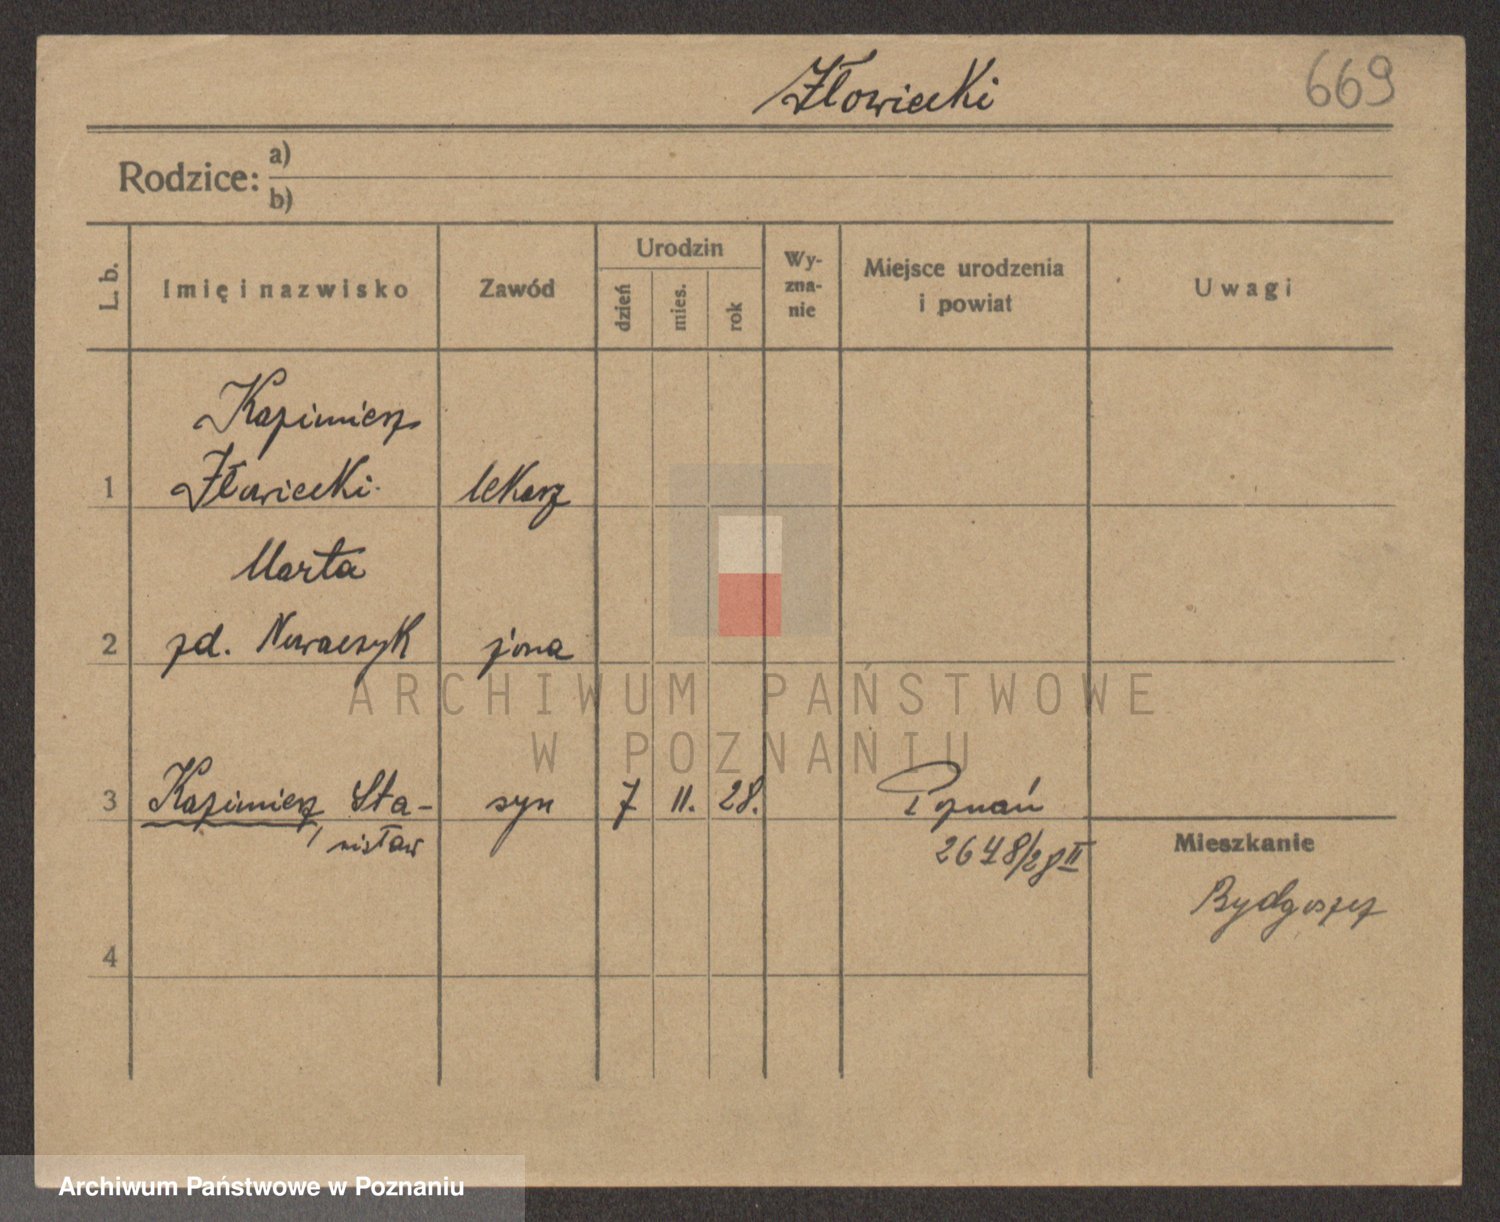 Złowiecki
669
Rodzice:
a)
b)
L. b.
Imię i nazwisko
Zawód
Urodzin
dzień
mies.
rok
Wy-
zna-
nie
Miejsce urodzenia
i powiat
Uwagi
Kazimierz
1 Złowiecki. lekarz
Marta
2 zd. Nowaczyk żona
3 Kazimierz, Sta- syn 7 11. 28. Poznań
nisław
2648/28 II
Mieszkanie
Bydgoszcz
4
ARCHIWUM PAŃSTWOWE
W POZNANIU
Archiwum Państwowe w Poznaniu